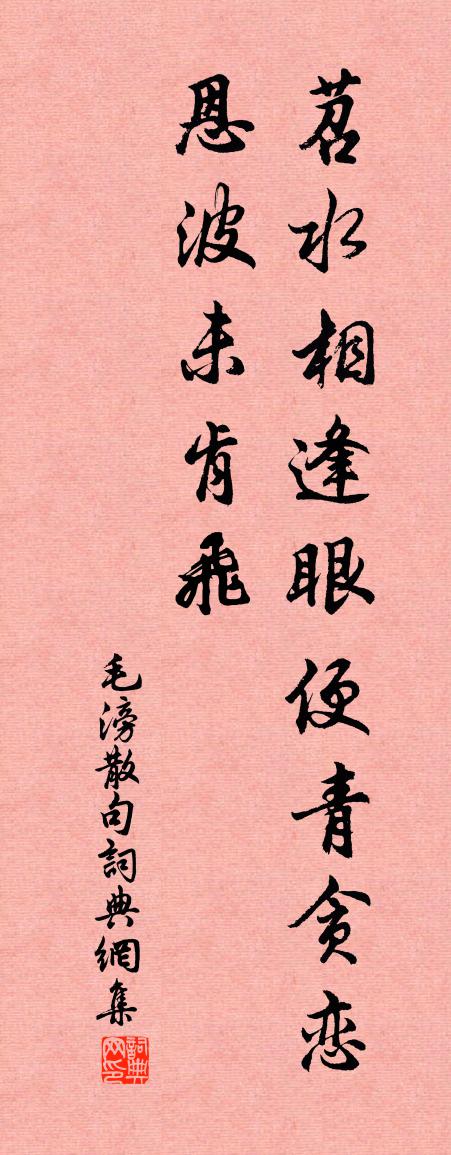 苕水相逢眼便青貪恋
恩波未肯飛
毛滂散句詞典網集
詞典网印